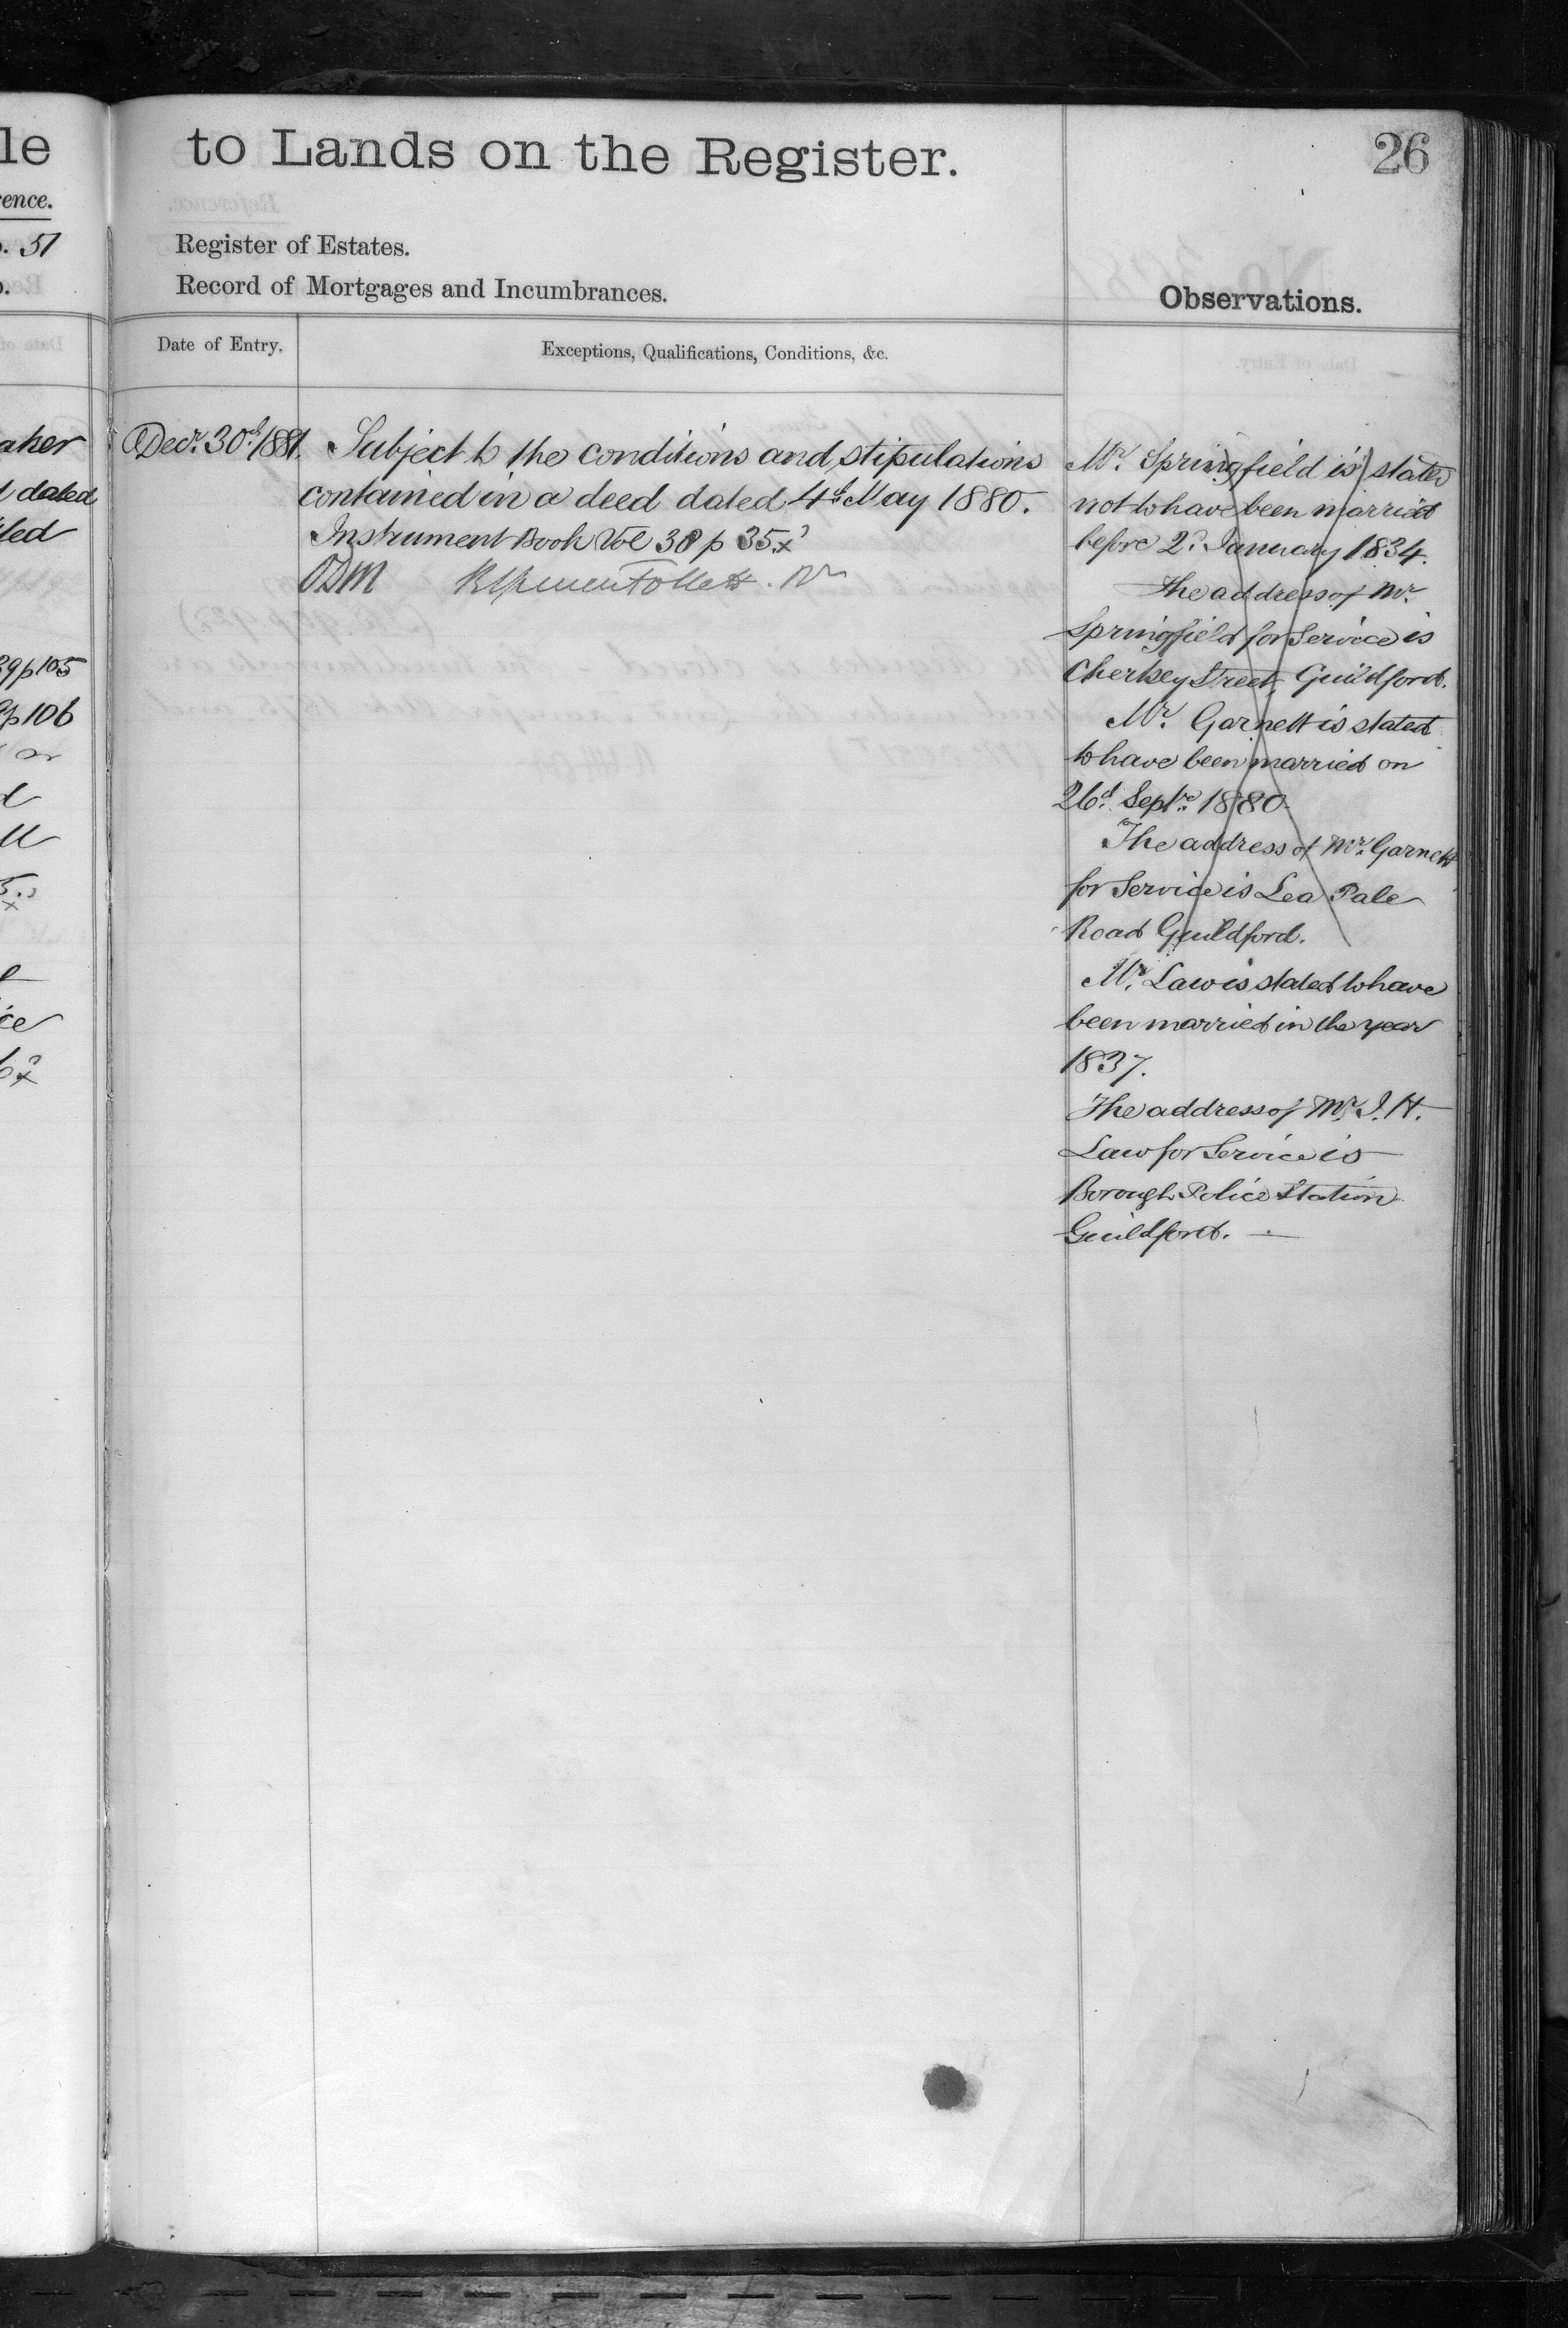 le
to Lands on the Register.
26
ence.
. 51
Register of Estates.
Record of Mortgages and Incumbrances.
Observations.
Date of Entry.
Exceptions, Qualifications, Conditions, &c.
aker
dated
39 p 105
p 106
Decr. 30th 1881.
Subject to the conditions and stipulations
contained in a deed dated 4th May 1880.
Instrument Book Vol 38 p 35
ODM
Mr. Springfield is stated
not to have been married
before 2d. January 1834.
The address of Mr.
Springfield for Service is
Chertsey Street, Guildford.
Mr. Garnett is stated
to have been married on
26th. Septr. 1880.
The address of Mr. Garnett
for Service is Lea Pale
Road Guildford.
Mr. Law is stated to have
been married in the year
1837.
The address of Mr. J. H.
Law for Service is
Borough Police Station
Guildford.